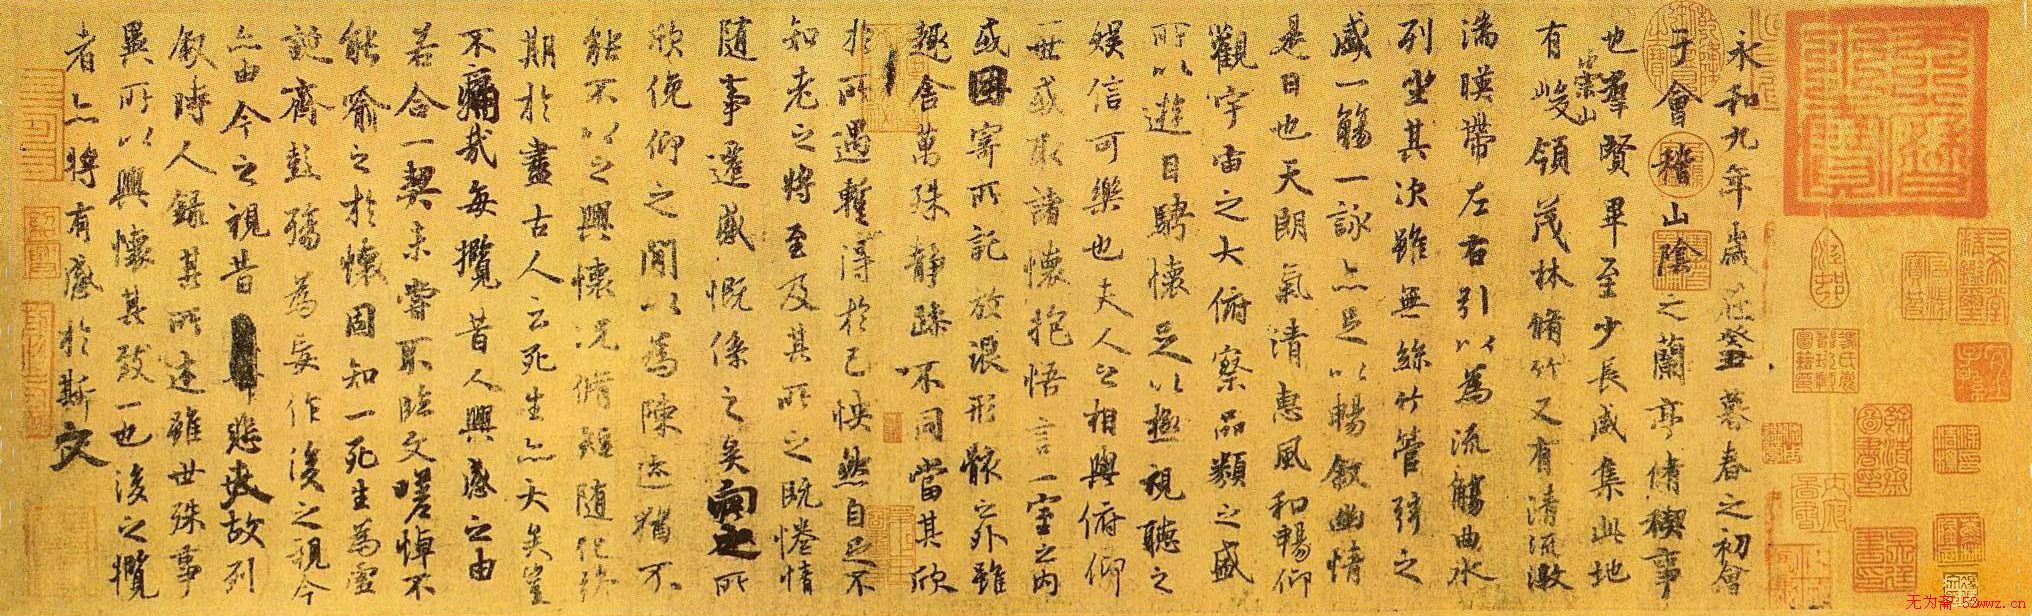 永和九年歲在癸丑暮春之初會
于會稽山陰之蘭亭脩稧事
也羣賢畢至少長咸集此地
有崇山峻領茂林脩竹又有清流激
湍暎帶左右引以為流觴曲水
列坐其次雖無絲竹管弦之
盛一觴一詠亦足以暢敘幽情
是日也天朗氣清惠風和暢仰
觀宇宙之大俯察品類之盛
所以遊目騁懷足以極視聽之
娛信可樂也夫人之相與俯仰
一世或取諸懷抱悟言一室之內
或因寄所託放浪形骸之外雖
趣舍萬殊靜躁不同當其欣
於所遇暫得於己怏然自足不
知老之將至及其所之既惓情
隨事遷感慨係之矣向之所
欣俛仰之閒以為陳迹猶不
能不以之興懷況脩短隨化終
期於盡古人云死生亦大矣豈
不痛哉每攬昔人興感之由
若合一契未嘗不臨文嗟悼不
能喻之於懷固知一死生為虛
誕齊彭殤為妄作後之視今
亦由今之視昔悲夫故列
敘時人錄其所述雖世殊事
異所以興懷其致一也後之攬
者亦將有感於斯文
无为斋 52wwz.cn